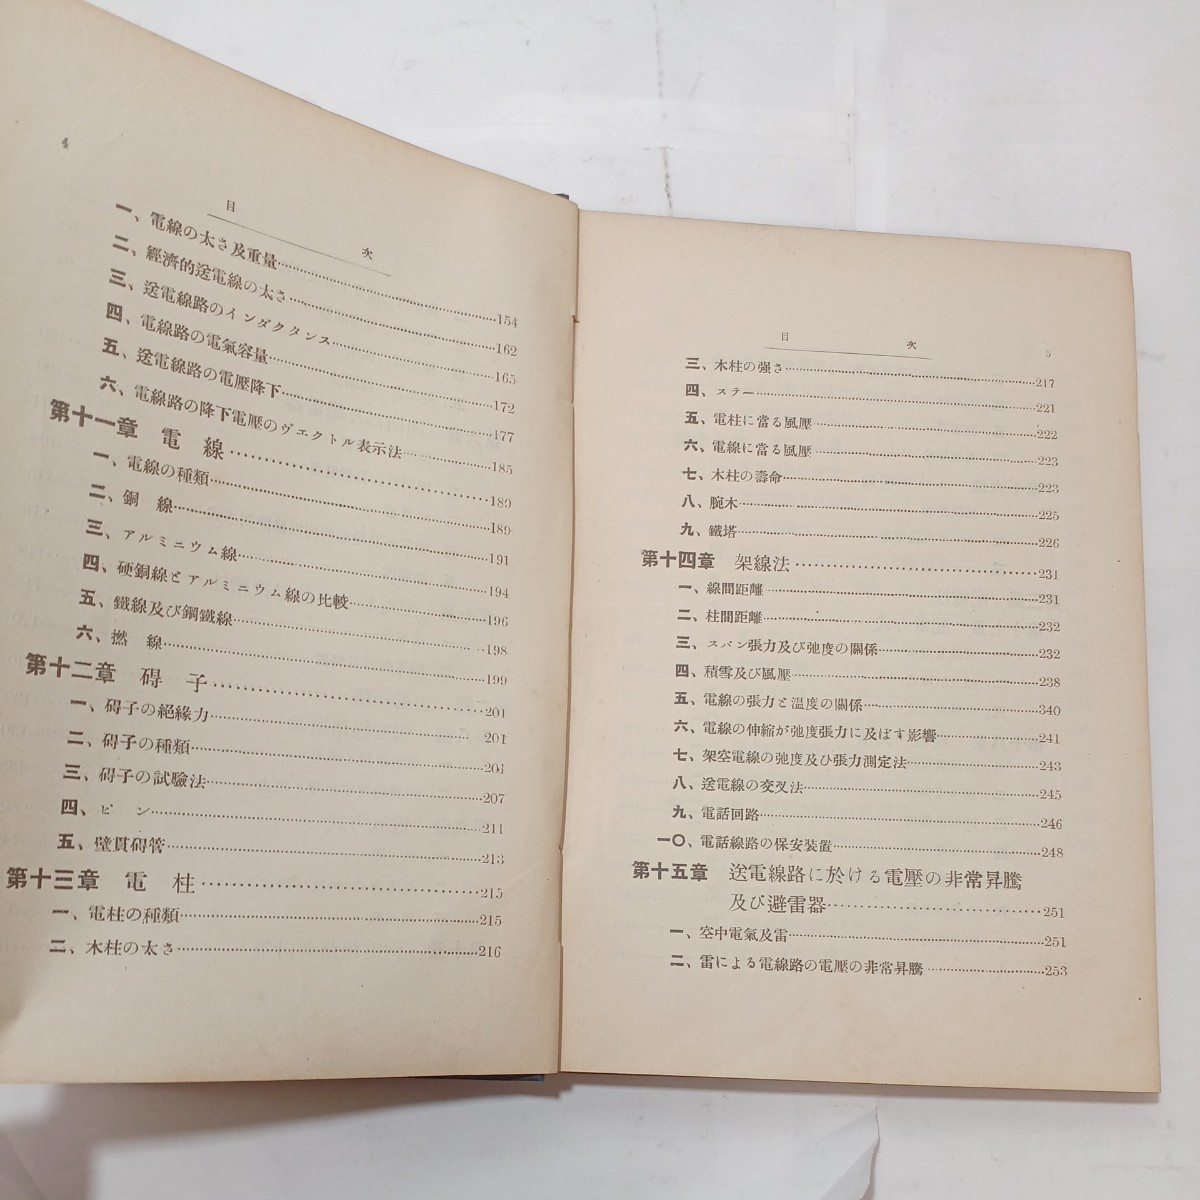 4
目 次
一、電線の太さ及重量 154
二、經濟的送電線の太さ 162
三、送電線路のインダクタンス 165
四、電線路の電氣容量 172
五、送電線路の電壓降下 177
六、電線路の降下電壓のヴエクトル表示法 185
第十一章 電線 189
一、電線の種類 189
二、銅線 191
三、アルミニウム線 194
四、硬銅線とアルミニウム線の比較 196
五、鐵線及び鋼鐵線 198
六、撚線 199
第十二章 碍子 201
一、碍子の絶縁力 201
二、碍子の種類 204
三、碍子の試驗法 207
四、ピン 211
五、壁貫碍管 213
第十三章 電柱 215
一、電柱の種類 215
二、木柱の太さ 216
目 次 5
三、木柱の强さ 217
四、ステー 221
五、電柱に當る風壓 222
六、電線に當る風壓 223
七、木柱の壽命 223
八、腕木 225
九、鐵塔 226
第十四章 架線法 231
一、線間距離 231
二、柱間距離 232
三、スパン張力及び弛度の關係 232
四、積雪及び風壓 238
五、電線の張力と温度の關係 340
六、電線の伸縮が弛度張力に及ぼす影響 241
七、架空電線の弛度及ひ張力測定法 243
八、送電線の交叉法 245
九、電話回路 246
一〇、電話線路の保安裝置 248
第十五章 送電線路に於ける電壓の非常昇騰
及び避雷器 251
一、空中電氣及雷 251
二、雷による電線路の電壓の非常昇騰 253